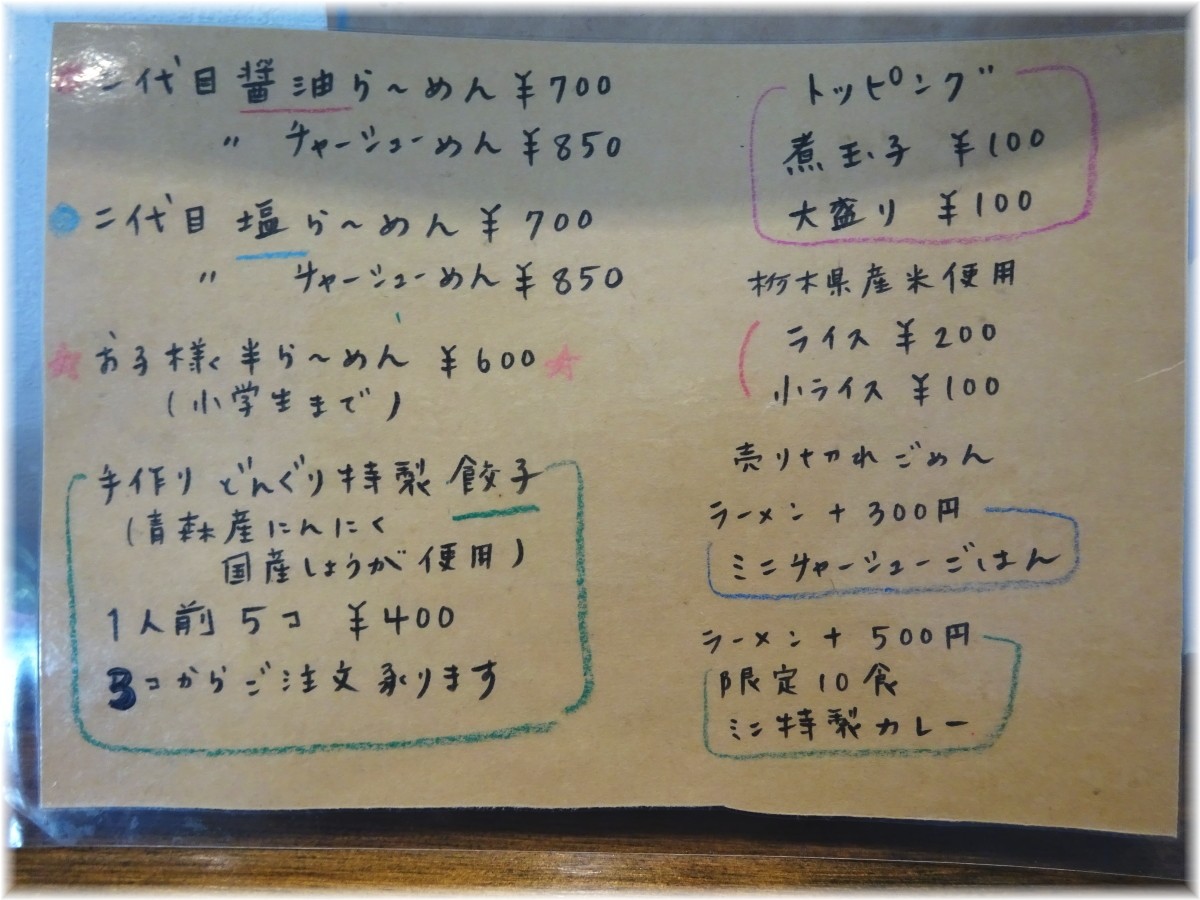 二代目 醤油ら〜めん ¥700
〃 チャーシューめん ¥850
二代目 塩ら〜めん ¥700
〃 チャーシューめん ¥850
お子様 半ら〜めん ¥600
(小学生まで)
手作り どんぐり特製 餃子
(青森産にんにく
国産しょうが使用)
1人前 5コ ¥400
3コからご注文承ります
トッピング
煮玉子 ¥100
大盛り ¥100
栃木県産米使用
ライス ¥200
小ライス ¥100
売り切れごめん
ラーメン + 300円
ミニチャーシューごはん
ラーメン + 500円
限定10食
ミニ特製カレー